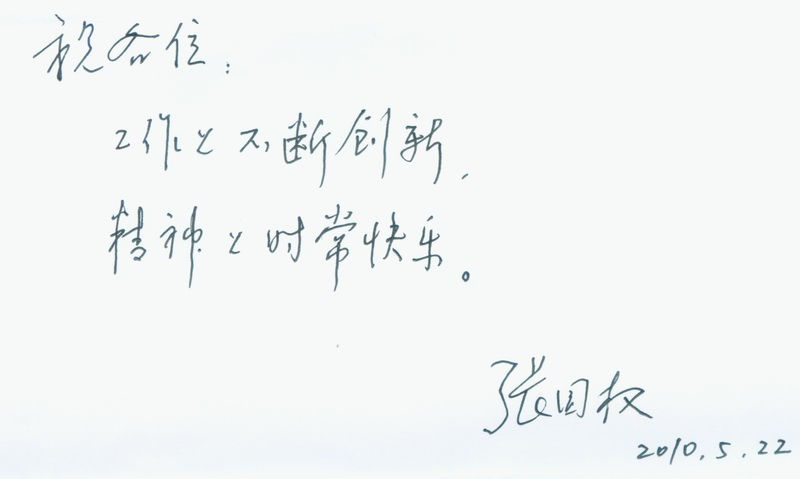 祝各位:
工作上不断创新,
精神上时常快乐。
张国权
2010.5.22